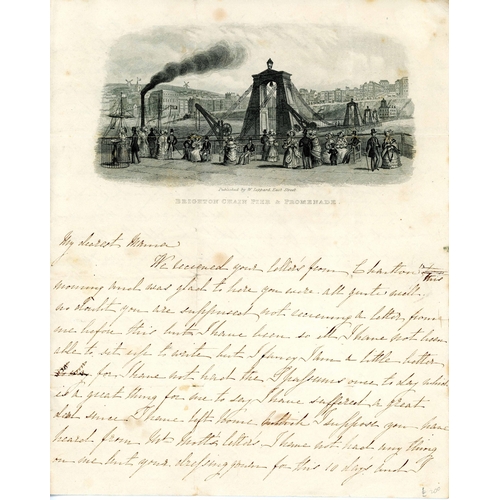 Published by W. Leppard East Street
BRIGHTON CHAIN PIER & PROMENADE.
My dearest Mama
We received your letters from Charlton this
morning and was glad to hear you were all quite well
no doubt you are surprised not receiving a letter from
me before this but I have been so ill I have not been
able to sit up to write but I fancy I am a little better
for I have not had the Spassums once to day which
is a great thing for me to say I have suffered a great
deal since I have left home I suppose you have
heard from Mr Motts letters. I have not had any thing
on me but your dressing gown for this 10 days and I